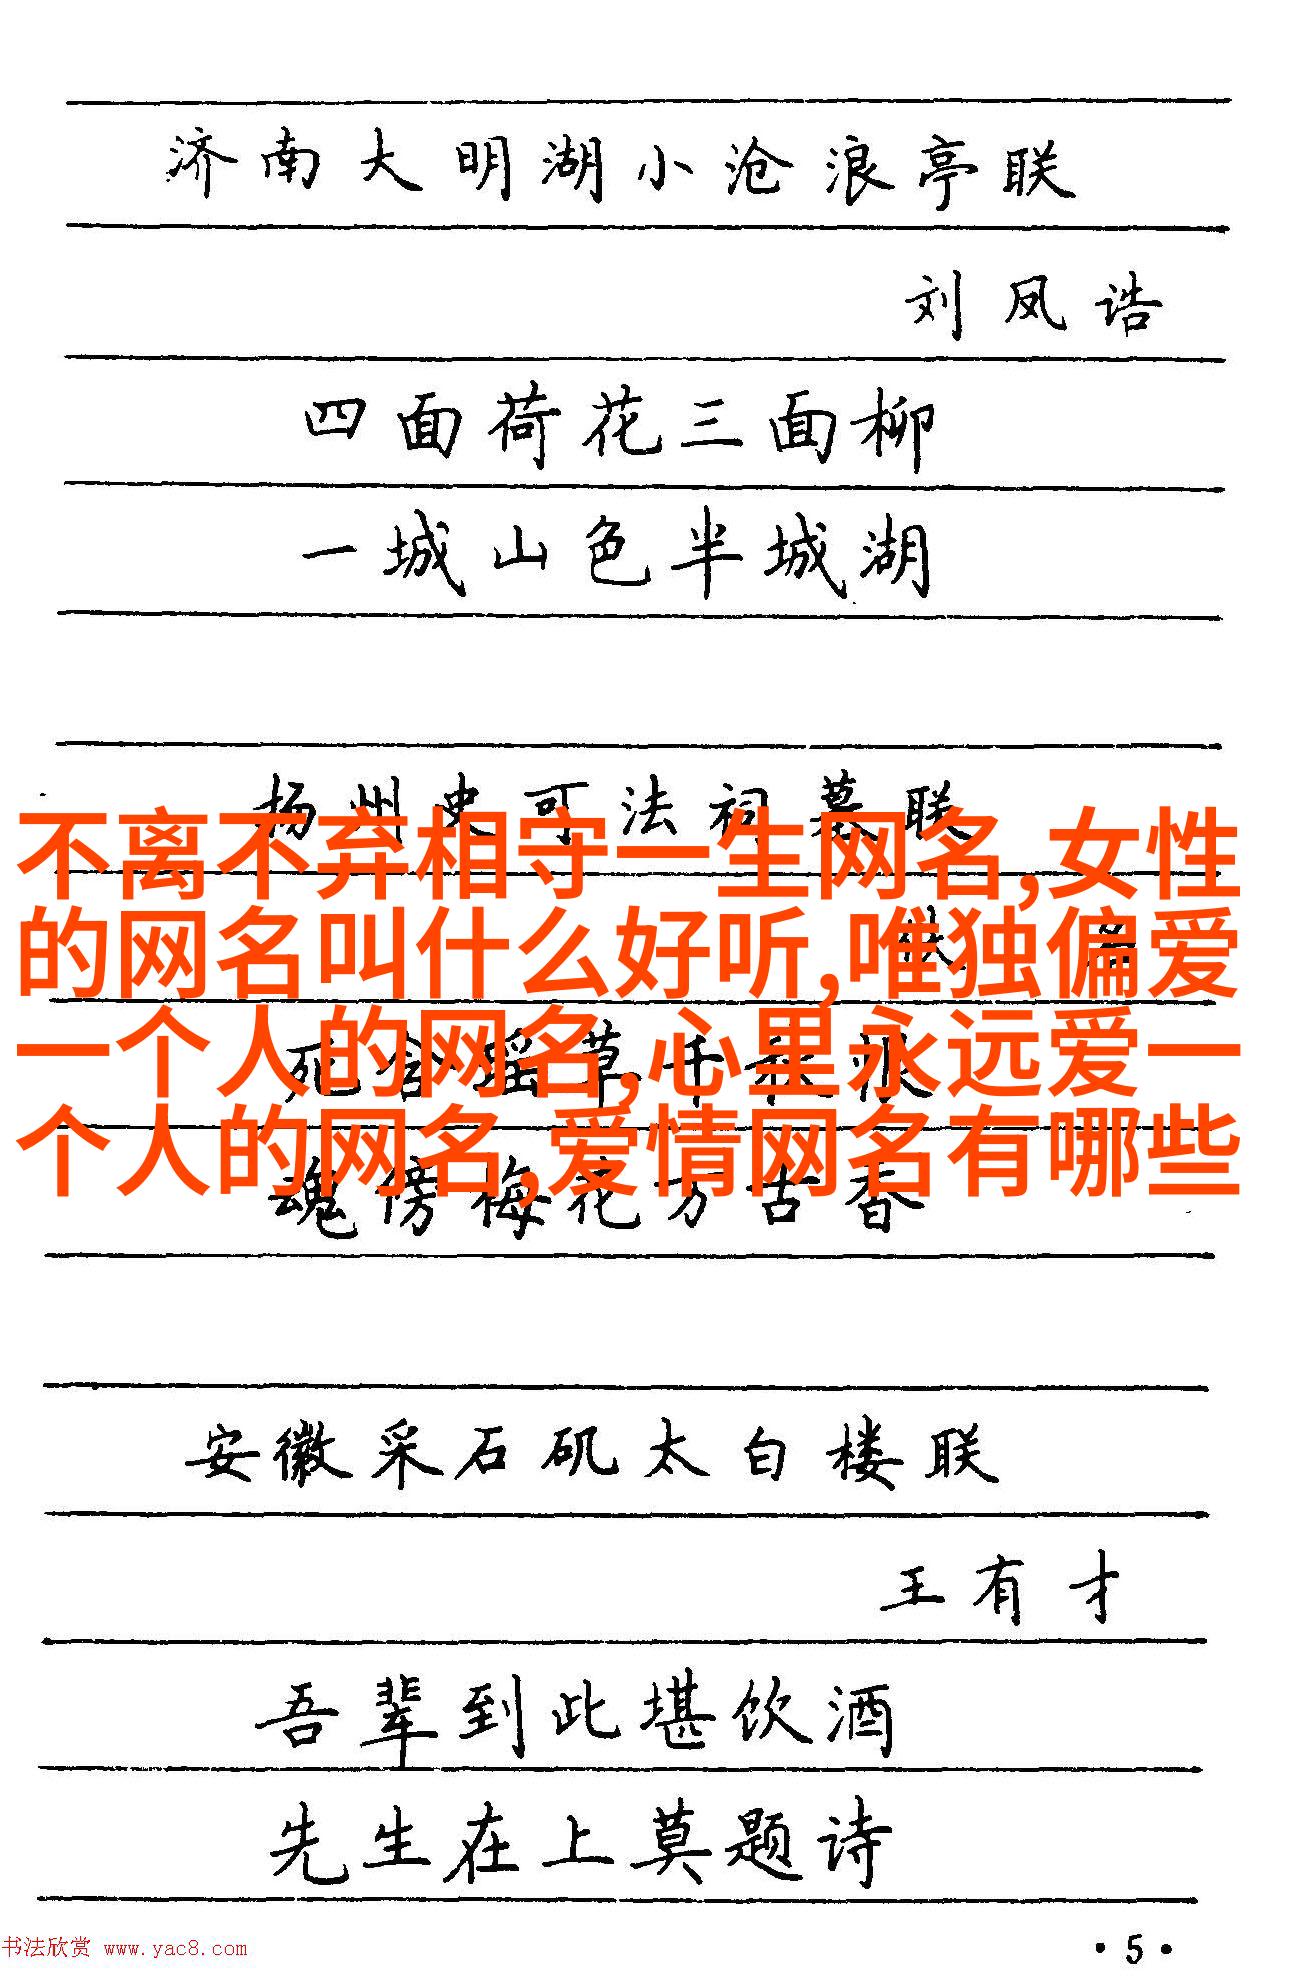 济南大明湖小沧浪亭联
刘凤诰
四面荷花三面柳
一城山色半城湖
扬州史可法祠墓联
不离不弃相守一生网名,女性
的网名叫什么好听,唯独偏爱
一个人的网名,心里永远爱一
个人的网名,爱情网名有哪些
魂傍梅花万古香
安徽采石矶太白楼联
王有才
吾辈到此堪饮酒
先生在上莫题诗
书法欣赏 www.yac8.com
·5·